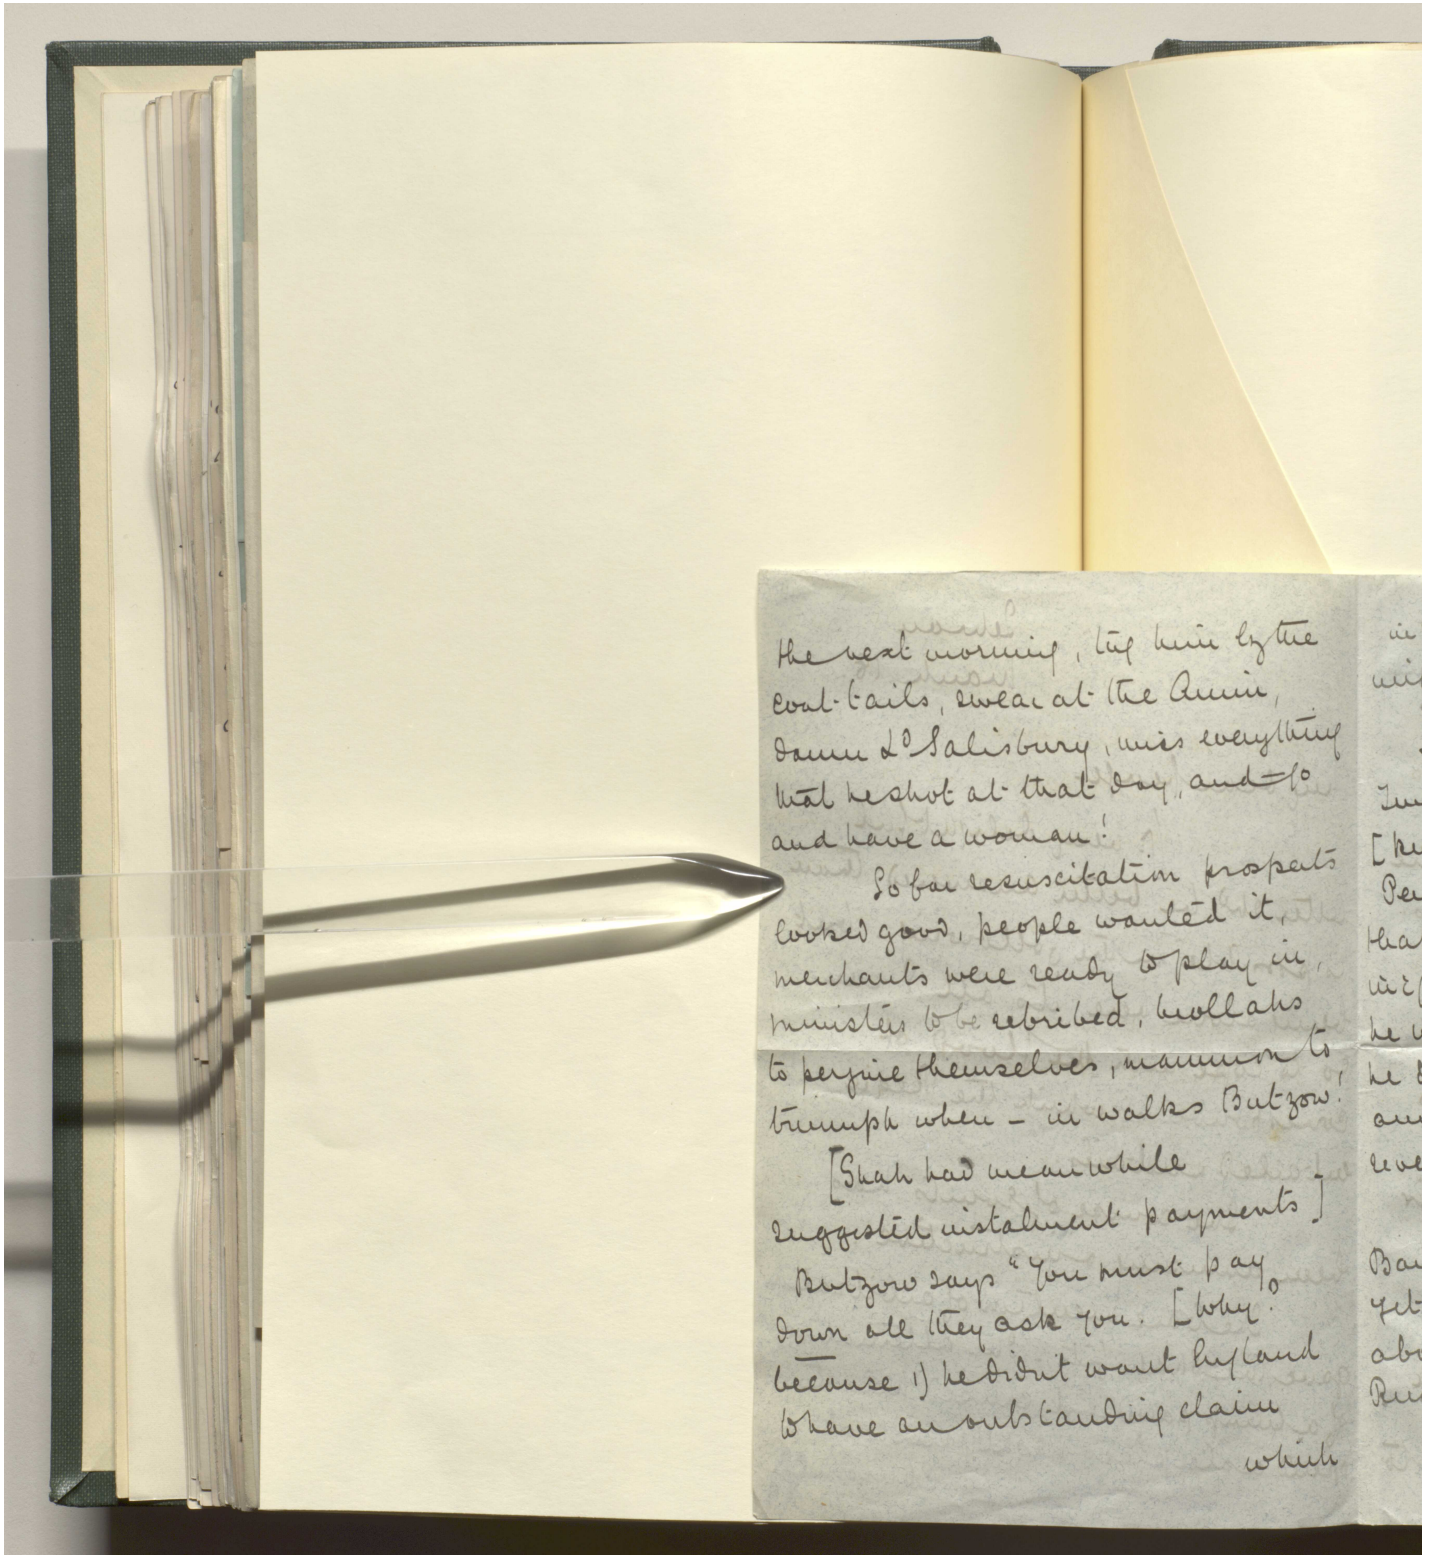 the next morning, tug him by the
coat-tails, swear at the Amin,
damn Ld Salisbury, miss everything
that he shot at that day, and go
and have a woman!
So far resuscitation prospects
looked good, people wanted it,
merchants were ready to play in,
ministers to be rebribed, mollahs
to perjure themselves, mammon to
triumph when – in walks Butzow!
[Shah had meanwhile
suggested instalment payments]
Butzow says "You must pay
down all they ask you. [Why?
because 1) he didn't want England
to have an outstanding claim
which
in
he
he